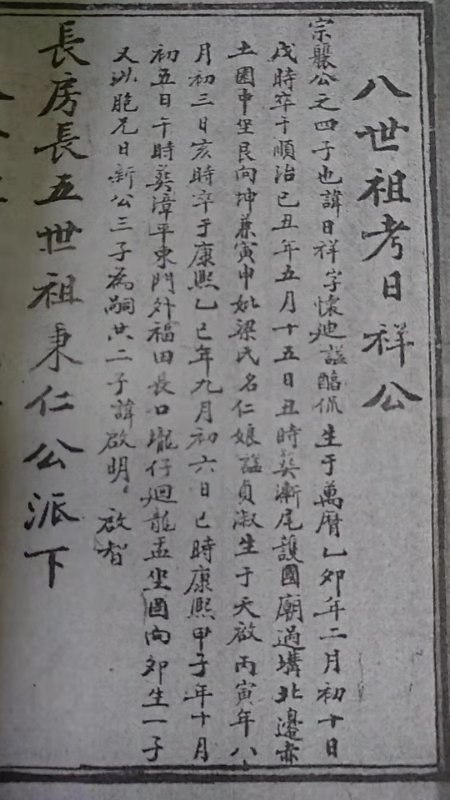 八世祖考日祥公
宗驥公之四子也諱日祥字懷迎諡醕侃生于萬曆乙卯年二月初十日
戌時卒于順治己丑年五月十五日丑時葬漸尾護國廟過溝北邊赤
土園中坐艮向坤兼寅申妣梁氏名仁娘諡貞淑生于天啟丙寅年八
月初三日亥時卒于康熙乙巳年九月初六日巳時康熙甲子年十月
初五日午時葬漳平東門外福田長口壠仔迴龍孟坐酉向卯生一子
又以胞兄日新公三子為嗣共二子諱啟明。啟智
長房長五世祖秉仁公派下